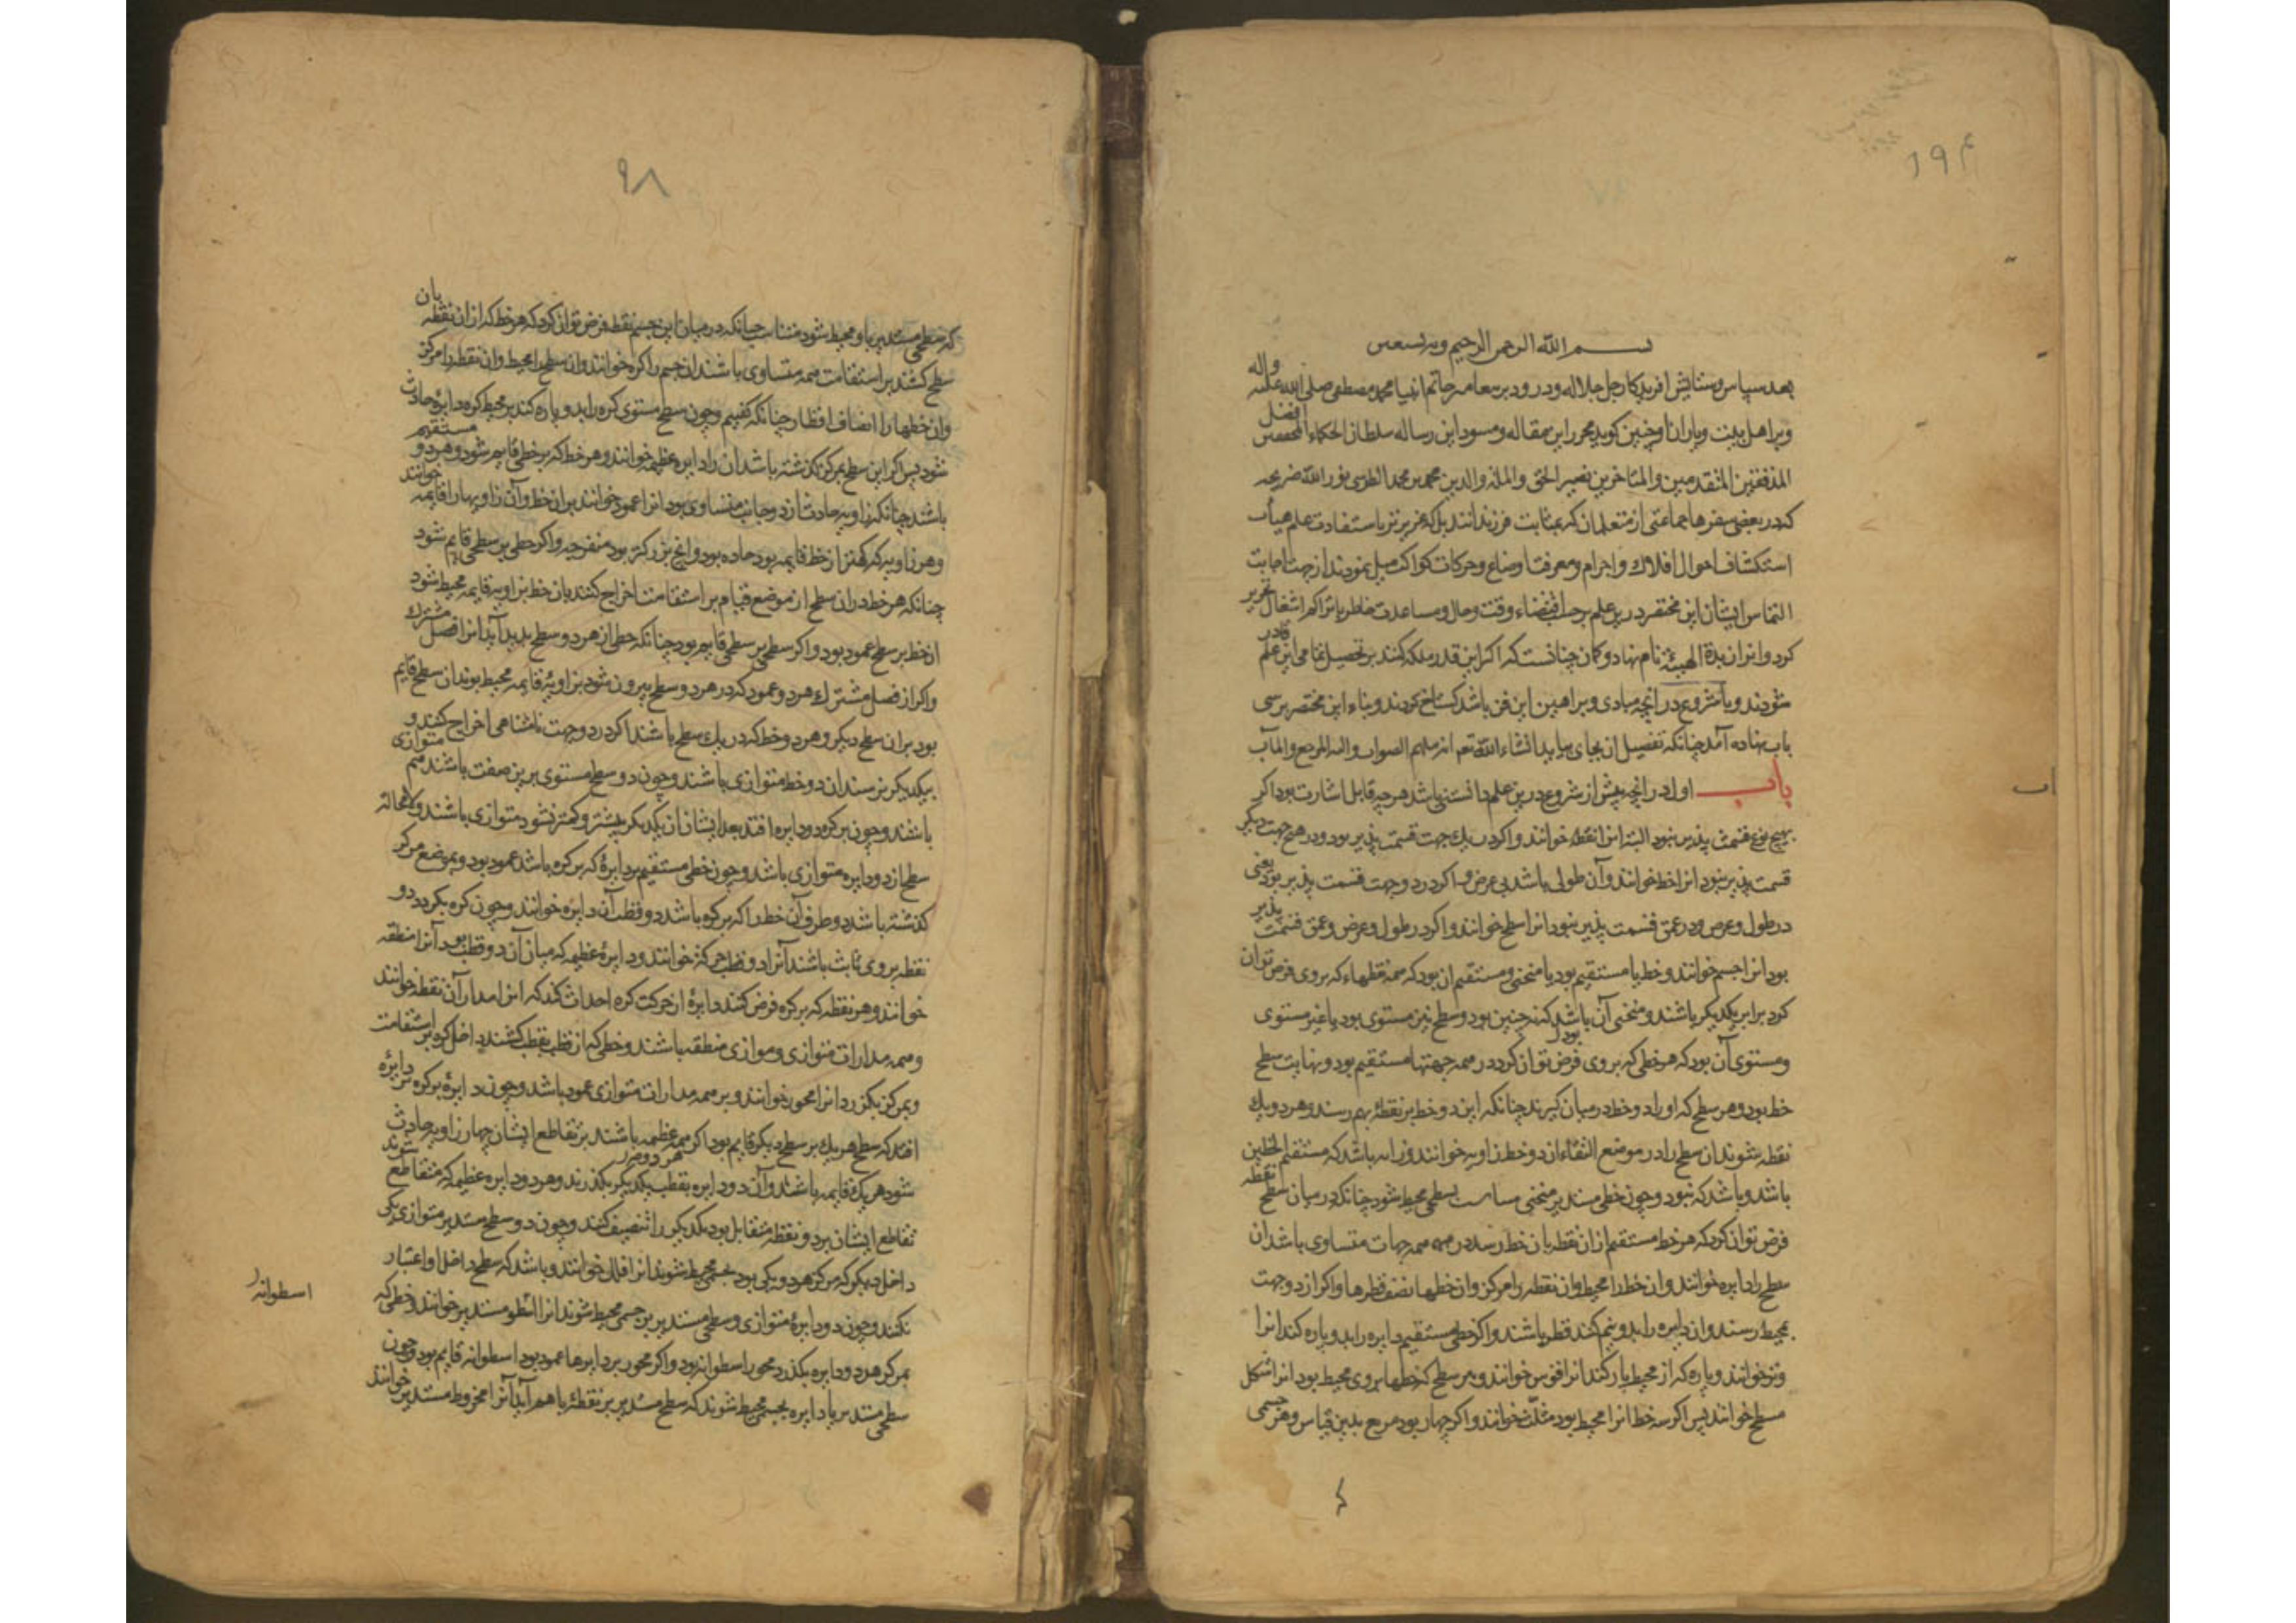 ۱۹۴
بسم الله الرحمن الرحیم وبه نستعین
بعد سپاس و ستایش افریدکار جل جلاله و درود بر خاتم انبیا محمد مصطفی صلی الله علیه واله
و بر اهل بیت و یاران او چنین کوید محرر این مقاله و مسود این رساله سلطان الحکماء المحققین افضل
المدققین المتقدمین والمتاخرین نصیر الحق والملة والدین محمد بن محمد الطوسی نور الله ضریحه
که در بعضی سفرها جماعتی از متعلمان که بمثابت فرزندانند بل که عزیزتر باستفادت علم هیأت
استکشاف احوال افلاک و اجرام و معرفت اوضاع و حرکات کواکب میل نمودند از جهت اجابت
التماس ایشان این مختصر درین علم بر حسب اقتضاء وقت و حال و مساعدت خاطر با تراکم اشغال تحریر
کرد و انرا زبدة الهیئه نام نهاد و کمان چنانست که اکر این قدر ملکه کنند بر تحصیل تمامی این علم قادر
شوند و با شروع در انچه مبادی و براهین این فن باشد کستاخ کردند و بناء این مختصر بر سی
باب نهاده آمد چنانکه تفصیل ان بجای بیاید انشاء الله تعم انه ملهم الصواب والیه المرجع والمآب
باب اول در انچه پیش از شروع درین علم دانستنی باشد هرچه قابل اشارت بود اکر
بهیچ نوع قسمت پذیر نبود البته انرا نقطه خوانند و اکر در یک جهت قسمت پذیر بود و در هیچ جهت دیکر
قسمت پذیر نبود انرا خط خوانند و آن طولی باشد بی عرض و اکر در دو جهت قسمت پذیر بود یعنی
در طول و عرض و در عمق قسمت پذیر نبود انرا سطح خوانند و اکر در طول و عرض و عمق قسمت پذیر
بود انرا جسم خوانند و خط یا مستقیم بود یا منحنی و مستقیم ان بود که همه نقطهاء که بر وی فرض توان
کرد برابر یکدیکر باشند و منحنی آن باشد که نه چنین بود و سطح نیز مستوی بود یا غیر مستوی
و مستوی آن بود که هر خطی که بر وی فرض توان کرد در همه جهتها مستقیم بود و نهایت سطح
خط بود و هر سطح که او را دو خط در میان کیرند چنانکه این دو خط بر نقطهٔ بهم رسند و هر دو یک
نقطه شوند ان سطح را در موضع التقاء ان دو خط زاویه خوانند و زاویه باشد که مستقیم الخطین
باشد و باشد که نبود و چون خطی مستدیر منحنی بسطحی محیط شود چنانکه در میان سطح نقطه
فرض توان کرد که هر خط مستقیم از ان نقطه بان خط رسد در همه جهات متساوی باشد ان
سطح را دایره خوانند و ان خط را محیط و ان نقطه را مرکز و ان خطها نصف قطرها و اکر از دو جهت
بمحیط رسند و ان دایره را بدو نیم کند قطر باشند و اکر خطی مستقیم دایره را بدو پاره کند انرا
وتر خوانند و پاره که از محیط پاره کند انرا قوس خوانند و هر سطح که خطها بر وی محیط بود انرا شکل
مسطح خوانند پس اکر سه خط انرا محیط بود مثلث خوانند و اکر چهار بود مربع بدین قیاس و هر جسمی
۹۸
که سطحی مستدیر باو محیط شود متناسب چنانکه در میان این جسم نقطه فرض توان کرد که هر خط که از ان نقطه بان
سطح کشند بر استقامت همه متساوی باشند ان جسم را کره خوانند و ان سطح را محیط و ان نقطه را مرکز
وان خطها را انصاف اقطار چنانکه کفتیم و چون سطح مستوی کره را بدو پاره کند بر محیط کره دایره حادث
شود پس اکر این سطح بمرکز کذشته باشد ان را دایره عظیمه خوانند و هر خط که بر خطی قایم شود و هر دو مستقیم
باشند چنانکه زاویه حادث از دو جانب متساوی بود انرا عمود خوانند بر ان خط و آن زاویها را قایمه خوانند
و هر زاویه که کمتر از خط قایمه بود حاده بود و انچ بزرکتر بود منفرجه و اکر خطی بر سطحی قایم شود
چنانکه هر خط در ان سطح از موضع قیام بر استقامت اخراج کنند بان خط بزاویه قایمه محیط شود
ان خط بر سطح عمود بود و اکر سطحی بر سطحی قایم بود چنانکه خطی از هر دو سطح پدید آید انرا فصل مشترک
و اکر از فصل مشترک هر دو عمود که در هر دو سطح بیرون شود بزاویهٔ قایمه محیط بوند ان سطح قایم
بود بر ان سطح دیکر و هر دو خط که در یک سطح باشند اکر در دو جهت نامتناهی اخراج کنند و
بیکدیکر نرسند ان دو خط متوازی باشند و چون دو سطح مستوی برین صفت باشند هم متوازی
باشند و چون بر کره دو دایره افتد بعد ایشان از یکدیکر بیشتر و کمتر نشود متوازی باشند و لامحاله
سطح ان دو دایره متوازی باشد و چون خطی مستقیم بر دایرهٔ که بر کره باشد عمود بود و بموضع مرکز
کذشته باشد دو طرف آن خط را که بر کره باشد دو قطب آن دایره خوانند و چون کره بکردد دو
نقطه بر وی ثابت باشند آنرا دو قطب حرکة خوانند و دایرهٔ عظیمه که میان آن دو قطب بود آنرا منطقه
خوانند و هر نقطه که بر کره فرض کنند دایرهٔ از حرکت کره احداث کند که انرا مدار آن نقطه خوانند
و همه مدارات متوازی و موازی منطقه باشند و خطی که از قطب بقطب کشند داخل کره بر استقامت
و بمرکز بکزرد انرا محور خوانند و بر همه مدارات متوازی عمود باشد و چون دایرهٔ بر کره بر دایره
افتد که سطح هر یک بر سطح دیکر قایم بود اکر همه عظیمه باشند بر تقاطع ایشان چهار زاویه حادث
شود هر یک قایمه باشند و آن دو دایره بقطب یکدیکر بکذرند و هر دو دایره عظیمه که متقاطع شوند
تقاطع ایشان بر دو نقطه متقابل بود یکدیکر را تنصیف کنند و چون دو سطح مستدیر متوازی یکی
داخل دیکر که مرکز هر دو یکی بود بجسمی محیط شوند انرا فلک خوانند و باشد که سطح داخل او اعتبار
نکنند و چون دو دایرهٔ متوازی و سطحی مستدیر بر جسمی محیط شوند انرا اسطوانه مستدیر خوانند و خطی که
اسطوانه
بمرکز هر دو دایره بکذرد محور اسطوانه بود و اکر محور بر دایرها عمود بود اسطوانه قایم بود و چون
سطحی مستدیر با دایره بجسمی محیط شوند که سطح مستدیر بر نقطهٔ با هم آید آنرا مخروط مستدیر خوانند